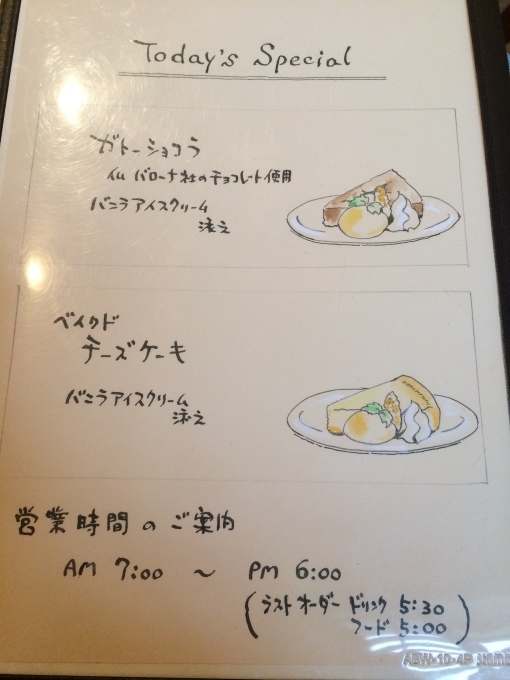 Today's Special
ガトーショコラ
仏 バローナ社のチョコレート使用
バニラアイスクリーム
添え
ベイクド
チーズケーキ
バニラアイスクリーム
添え
営業時間のご案内
AM 7:00 ~ PM 6:00
(ラストオーダー ドリンク 5:30
フード 5:00)